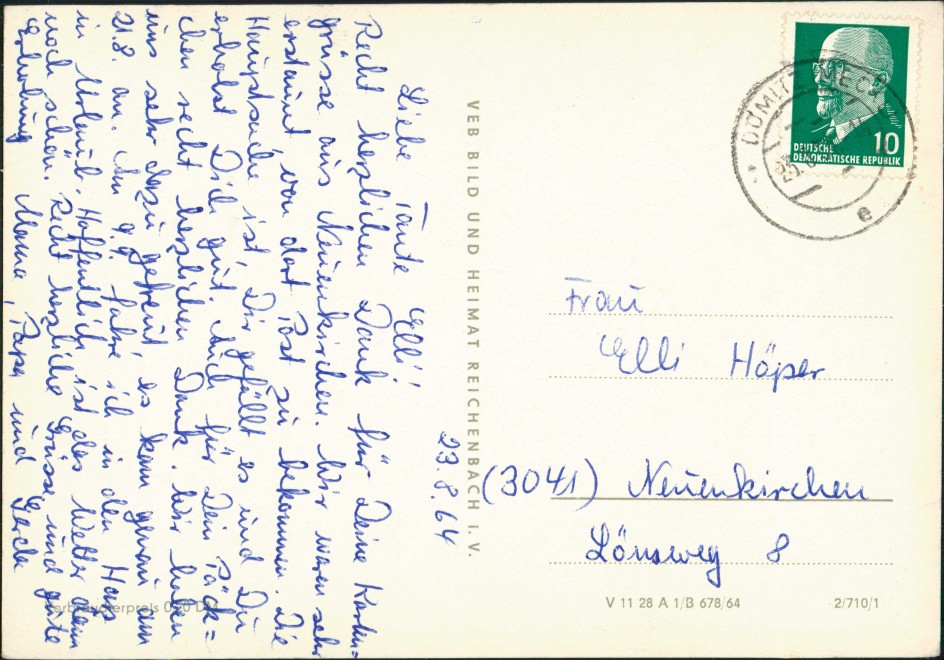 23.8.64
Liebe Tante Elli!
Recht herzlichen Dank für Deine Karten=
grüsse aus Neuenkirchen. Wir waren sehr
erstaunt von dort Post zu bekommen. Die
Hauptsache ist, Dir gefällt es und Du
erholst Dich gut. Auch für Dein Päck=
chen recht herzlichen Dank. Wir haben
uns sehr dazu gefreut, es kam genau am
21.8. an. Am 9.9. fahre ich in den Harz
in Urlaub. Hoffentlich ist das Wetter dann
noch schön. Recht herzliche Grüsse und gute
Erholung Mama, Papa und Gerda
VEB BILD UND HEIMAT REICHENBACH I. V.
DEUTSCHE
DEMOKRATISCHE REPUBLIK
10
DÖMITZ (MECK
e
Frau
Elli Höper
(3041) Neuenkirchen
Lönsweg 8
Verbraucherpreis 0,20 DM
V 11 28 A 1/B 678/64
2/710/1